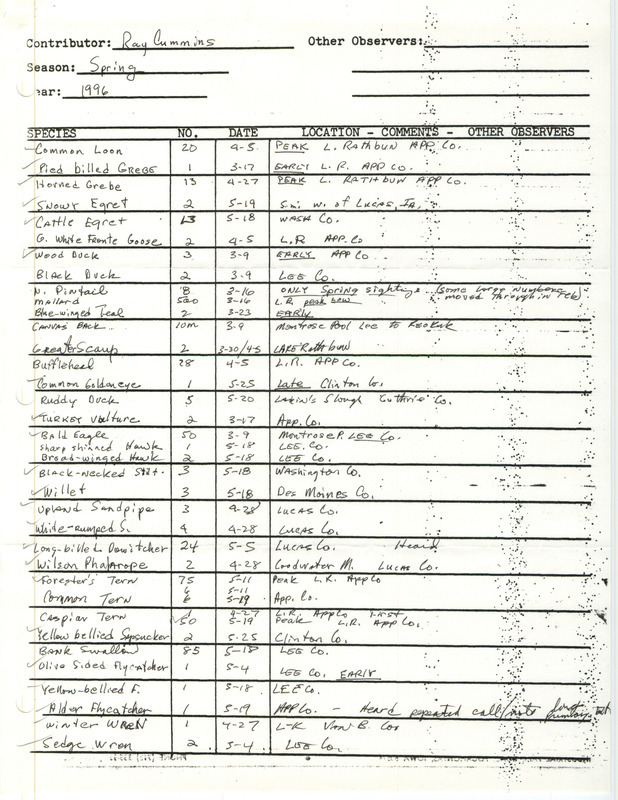 Contributor: Ray Cummins Other Observers:
Season: Spring
ear: 1996
SPECIES NO. DATE LOCATION - COMMENTS - OTHER OBSERVERS
Common Loon 20 4-5 PEAK L. Rathbun APP Co.
Pied billed Grebe 1 3-17 EARLY L.R. APP Co.
Horned Grebe 13 4-27 PEAK L. RATHBUN APP Co.
Snowy Egret 2 5-19 5mi w. of Lucas, IA.
Cattle Egret 13 5-18 WASH Co.
G. White Fronte Goose 2 4-5 L.R APP.Co
Wood Duck 3 3-9 EARLY APP Co
Black Duck 2 3-9 LEE Co.
N. Pintail 8 3-16 ONLY Spring sighting (some large numbers
moved through in Feb)
Mallard 500 3-16 L.R. peak
Blue-winged Teal 2 3-23 EARLY
CANVAS BACK 10m 3-9 Montrose Pool Lee to Keokuk
Greater Scaup 2 3-20/4-5 LAKE Rathbun
Bufflehead 28 4-5 L.R. APP Co.
Common Goldeneye 1 5-25 Late Clinton Co.
Ruddy Duck 5 5-20 Slough Guthrie Co.
TURKEY Vulture 2 3-17 App.Co.
Bald Eagle 50 3-9 Montrose P. LEE Co.
Sharp shinned Hawk 1 5-18 LEE.Co.
Broad-winged Hawk 2 5-18 LEE Co.
Black-Necked Stit. 3 5-18 Washington Co.
Willet 3 5-18 Des Moines Co.
Upland Sandpipe 3 4-28 Lucas Co.
White-rumped S. 4 4-28 Lucas Co.
Long-billed Dowitcher 24 5-5 Lucas Co. Heard
Wilson Phalarope 2 4-28 M. Lucas Co.
Forester's Tern 75 5-11 Peak L.R. AppCo
Common Tern 6 5-11
6 5-19 App. Co.
Caspian Tern 1 4-27 L.R. AppCo First
50 5-19 Peak L.R. App Co.
Yellow bellied Sapsucker 2 5-25 Clinton Co.
Bank Swallow 85 5-18 LEE Co.
Olive Sided Flycatcher 1 5-4 LEE Co. EARLY
Yellow-bellied F. 1 5-18. LEECo.
Alder Flycatcher 1 5-19 APPCo. - Heard repeated call/note
Winter WREN 1 4-27 L-K Van-B. Co
Sedge Wren 2 5-4 LEE Co.